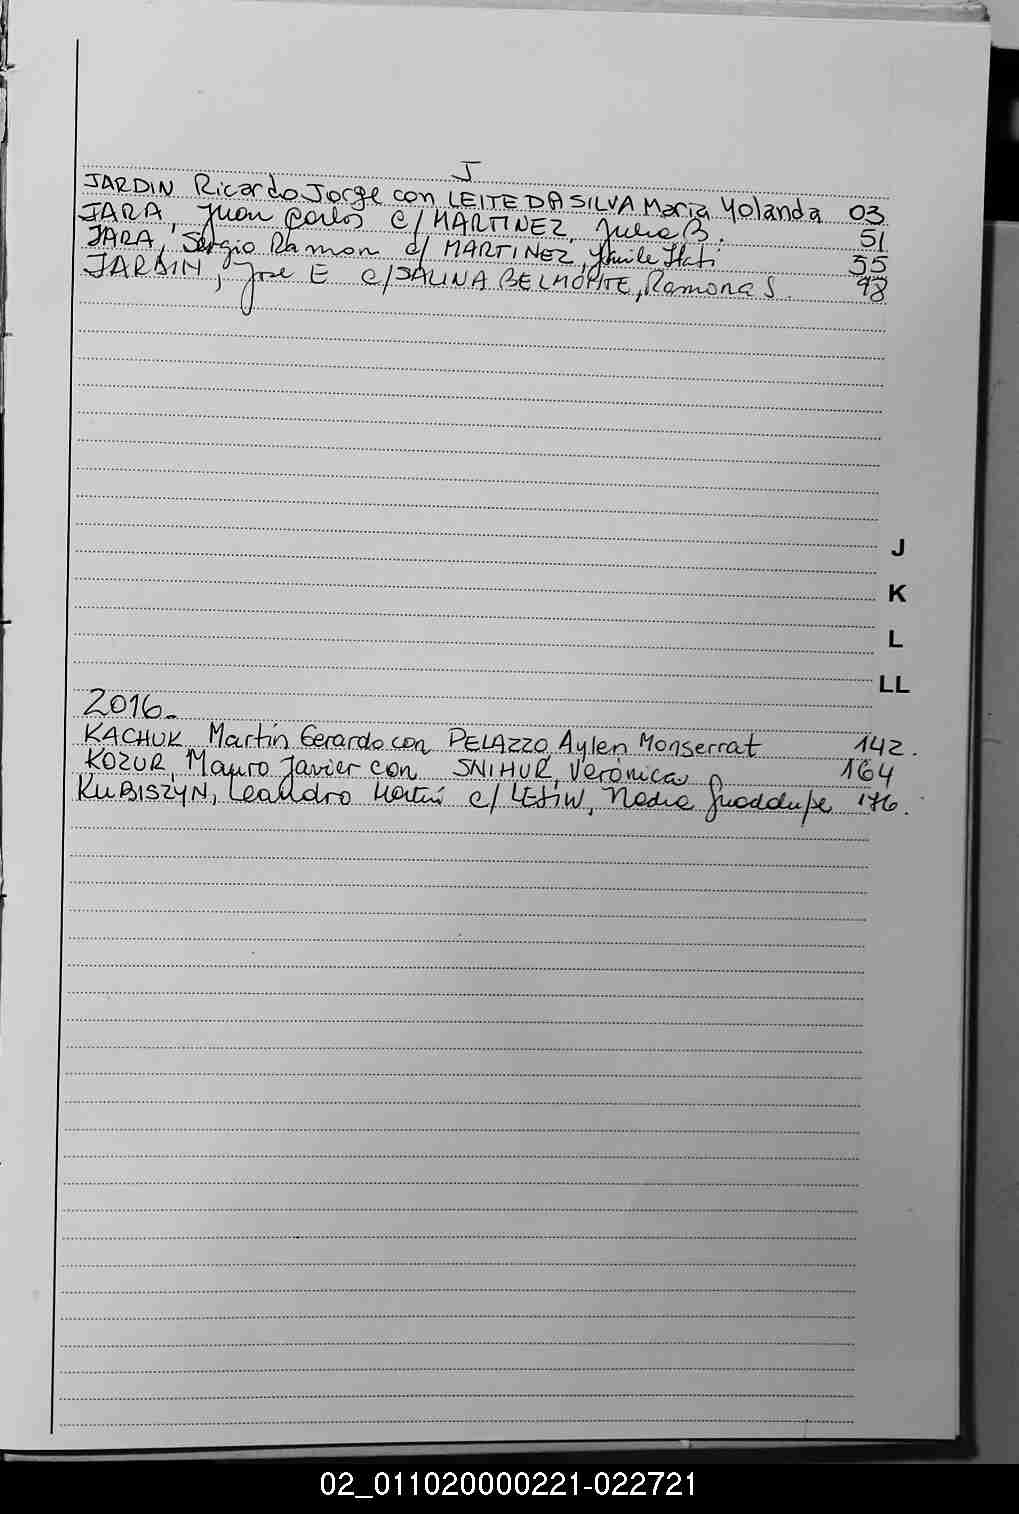 J
JARDIN Ricardo Jorge con LEITE DA SILVA María Yolanda 03
JARA, Juan Carlos c/ MARTINEZ, Julia B. 51
JARA, Sergio Ramon c/ MARTINEZ, Itati 55
JARDIN, Jose E c/ SALINA BELMONTE, Ramona S. 98
J
K
L
LL
2016.
KACHUK Martín Gerardo con PELAZZO, Aylen Monserrat 142.
KOZUR, Mauro Javier con SNIHUR, Verónica 164
KUBISZYN, Leandro Martín c/ Nadia Guadalupe 176.
02_011020000221-022721